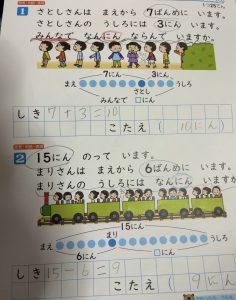 1 さとしさんは まえから 7ばんめに います。
さとしさんの うしろには 3にん います。
みんなで なんにん ならんで いますか。
7にん 3にん
まえ うしろ
さとし
みんなで □にん
しき 7+3=10
こたえ ( 10にん )
2 15にん のって います。
まりさんは まえから 6ばんめに います。
まりさんの うしろには なんにん いますか。
15にん
まり
まえ うしろ
6にん □にん
しき 15-6=9
こたえ ( 9にん )